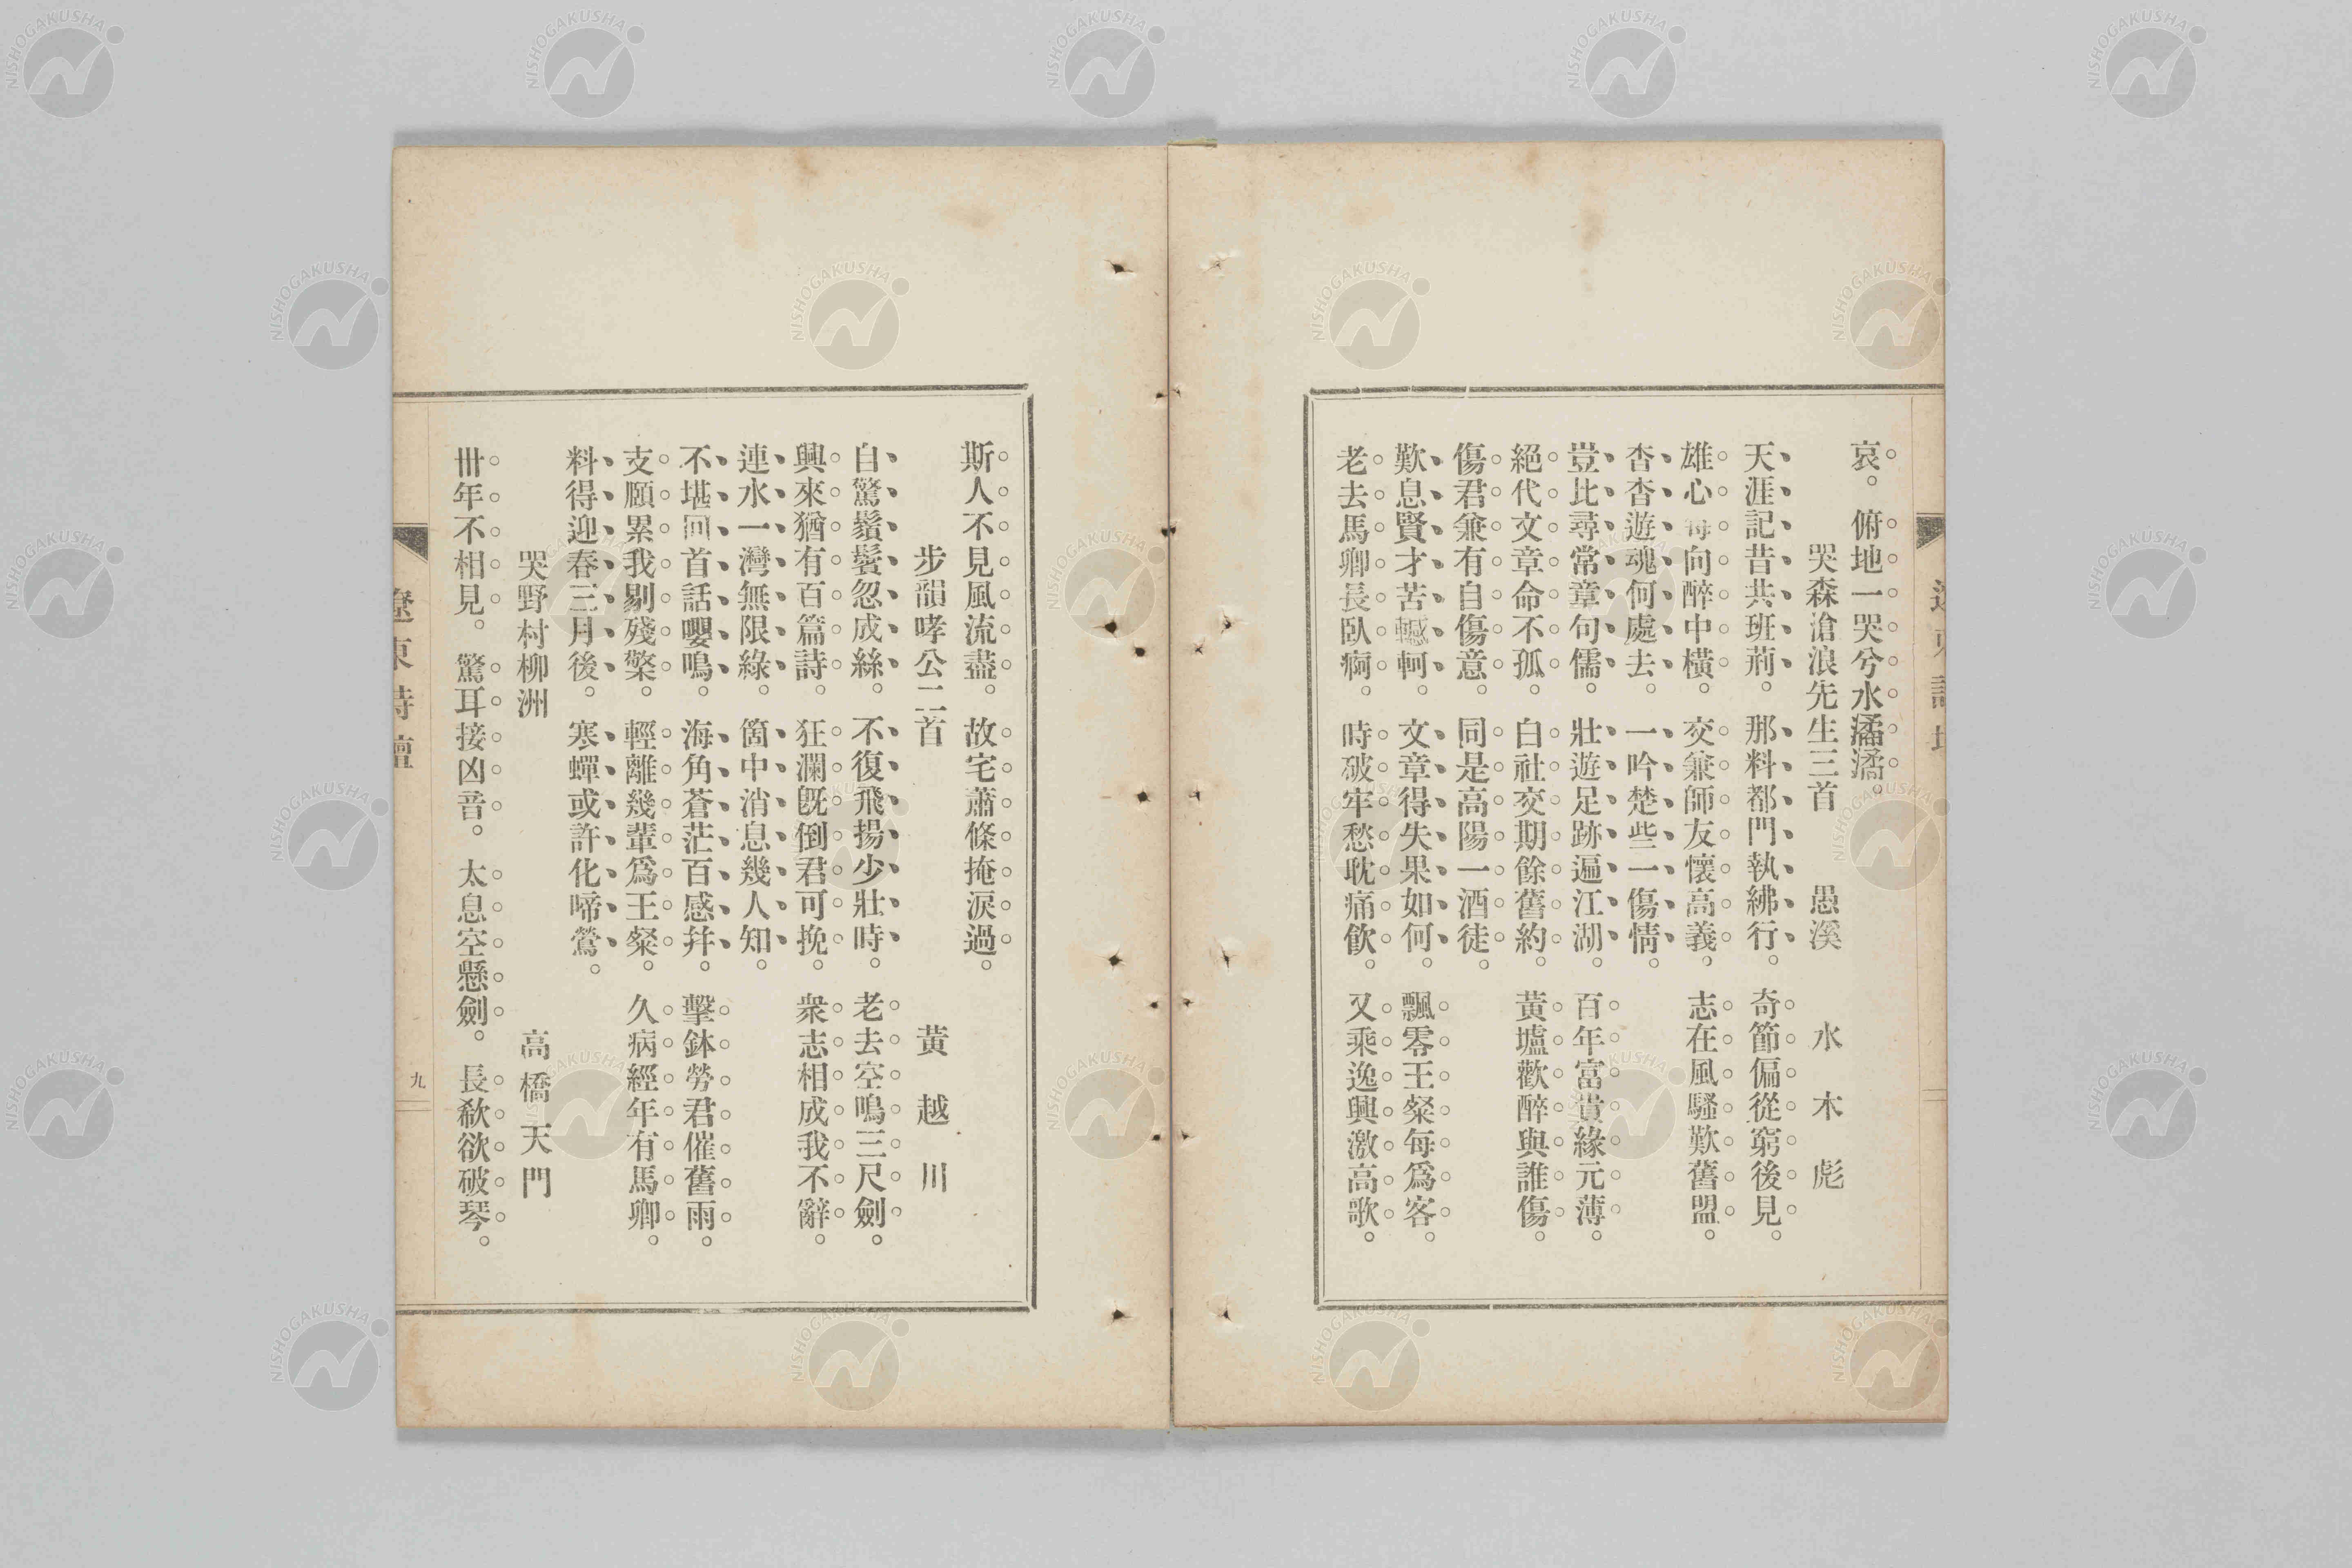 哀。俯地一哭兮水潏潏。
哭森滄浪先生三首 愚溪 水木彪
天涯記昔共班荊。那料都門執紼行。奇節偏從窮後見。
雄心每向醉中橫。交兼師友懷高義。志在風騷歎舊盟。
杳杳遊魂何處去。一吟楚些一傷情。
豈比尋常章句儒。壯遊足跡遍江湖。百年富貴緣元薄。
絕代文章命不孤。白社交期餘舊約。黃壚歡醉與誰傷。
傷君兼有自傷意。同是高陽一酒徒。
歎息賢才苦轗軻。文章得失果如何。飄零王粲每爲客。
老去馬卿長臥痾。時破牢愁耽痛飮。又乘逸興激高歌。
斯人不見風流盡。故宅蕭條掩淚過。
步韻哮公二首 黃越川
白驚鬚鬢忽成絲。不復飛揚少壯時。老去空鳴三尺劍。
興來猶有百篇詩。狂瀾旣倒君可挽。衆志相成我不辭。
連水一灣無限綠。箇中消息幾人知。
不堪回首話嚶鳴。海角蒼茫百感幷。擊鉢勞君催舊雨。
支願累我剔殘檠。輕離幾輩爲王粲。久病經年有馬卿。
料得迎春三月後。寒蟬或許化啼鶯。
哭野村柳洲 高橋天門
卌年不相見。驚耳接凶音。太息空懸劍。長欷欲破琴。
遼東詩壇
九